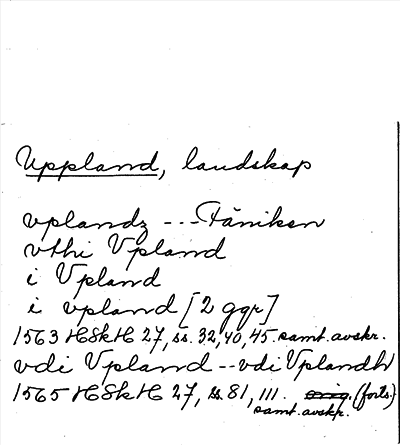 Uppland, landskap
vplandz --- Fäniken
vthi Vpland
i Vpland
i vpland [2 ggr]
1563 HSkH 27, ss. 32, 40, 45. samt. avskr.
vdi Vpland -- vdi Vplandh
1565 HSkH 27, ss 81, 111. orig. (forts.)
samt. avskr.